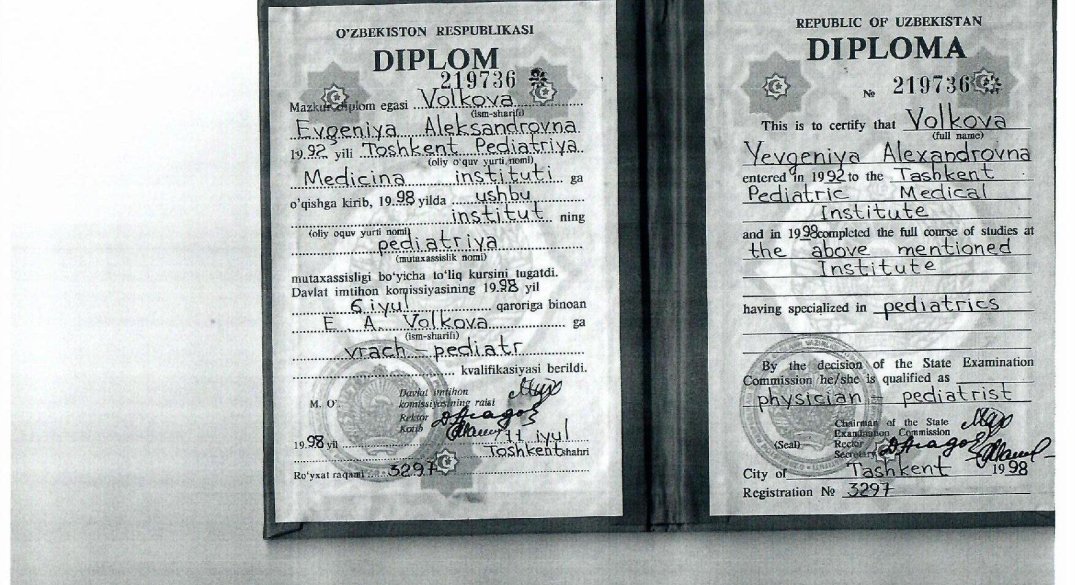 O'ZBEKISTON RESPUBLIKASI
DIPLOM
219736
Mazkur diplom egasi Volkova
(ism-sharifi)
Evgeniya Aleksandrovna
1992 yili Toshkent Pediatriya
(oliy o'quv yurti nomi)
Medicina instituti ga
o'qishga kirib, 1998 yilda ushbu
institut ning
(oliy oquv yurti nomi)
pediatriya
(mutaxassislik nomi)
mutaxassisligi bo'yicha to'liq kursini tugatdi.
Davlat imtihon komissiyasining 1998 yil
6 iyul qaroriga binoan
E. A. Volkova ga
(ism-sharifi)
vrach pediatr
kvalifikasiyasi berildi.
M. O'.
Davlat imtihon
komissiyasining raisi
Rektor
Kotib
1998 yil 11 iyul
Toshkent shahri
Ro'yxat raqami 3297
REPUBLIC OF UZBEKISTAN
DIPLOMA
№ 219736
This is to certify that Volkova
(full name)
Yevgeniya Alexandrovna
entered in 1992 to the Tashkent
Pediatric Medical
Institute
and in 1998 completed the full course of studies at
the above mentioned
Institute
having specialized in pediatrics
By the decision of the State Examination
Commission he/she is qualified as
physician - pediatrist
Chairman of the State
Examination Commission
(Seal) Rector
Secretary
City of Tashkent 1998
Registration № 3297